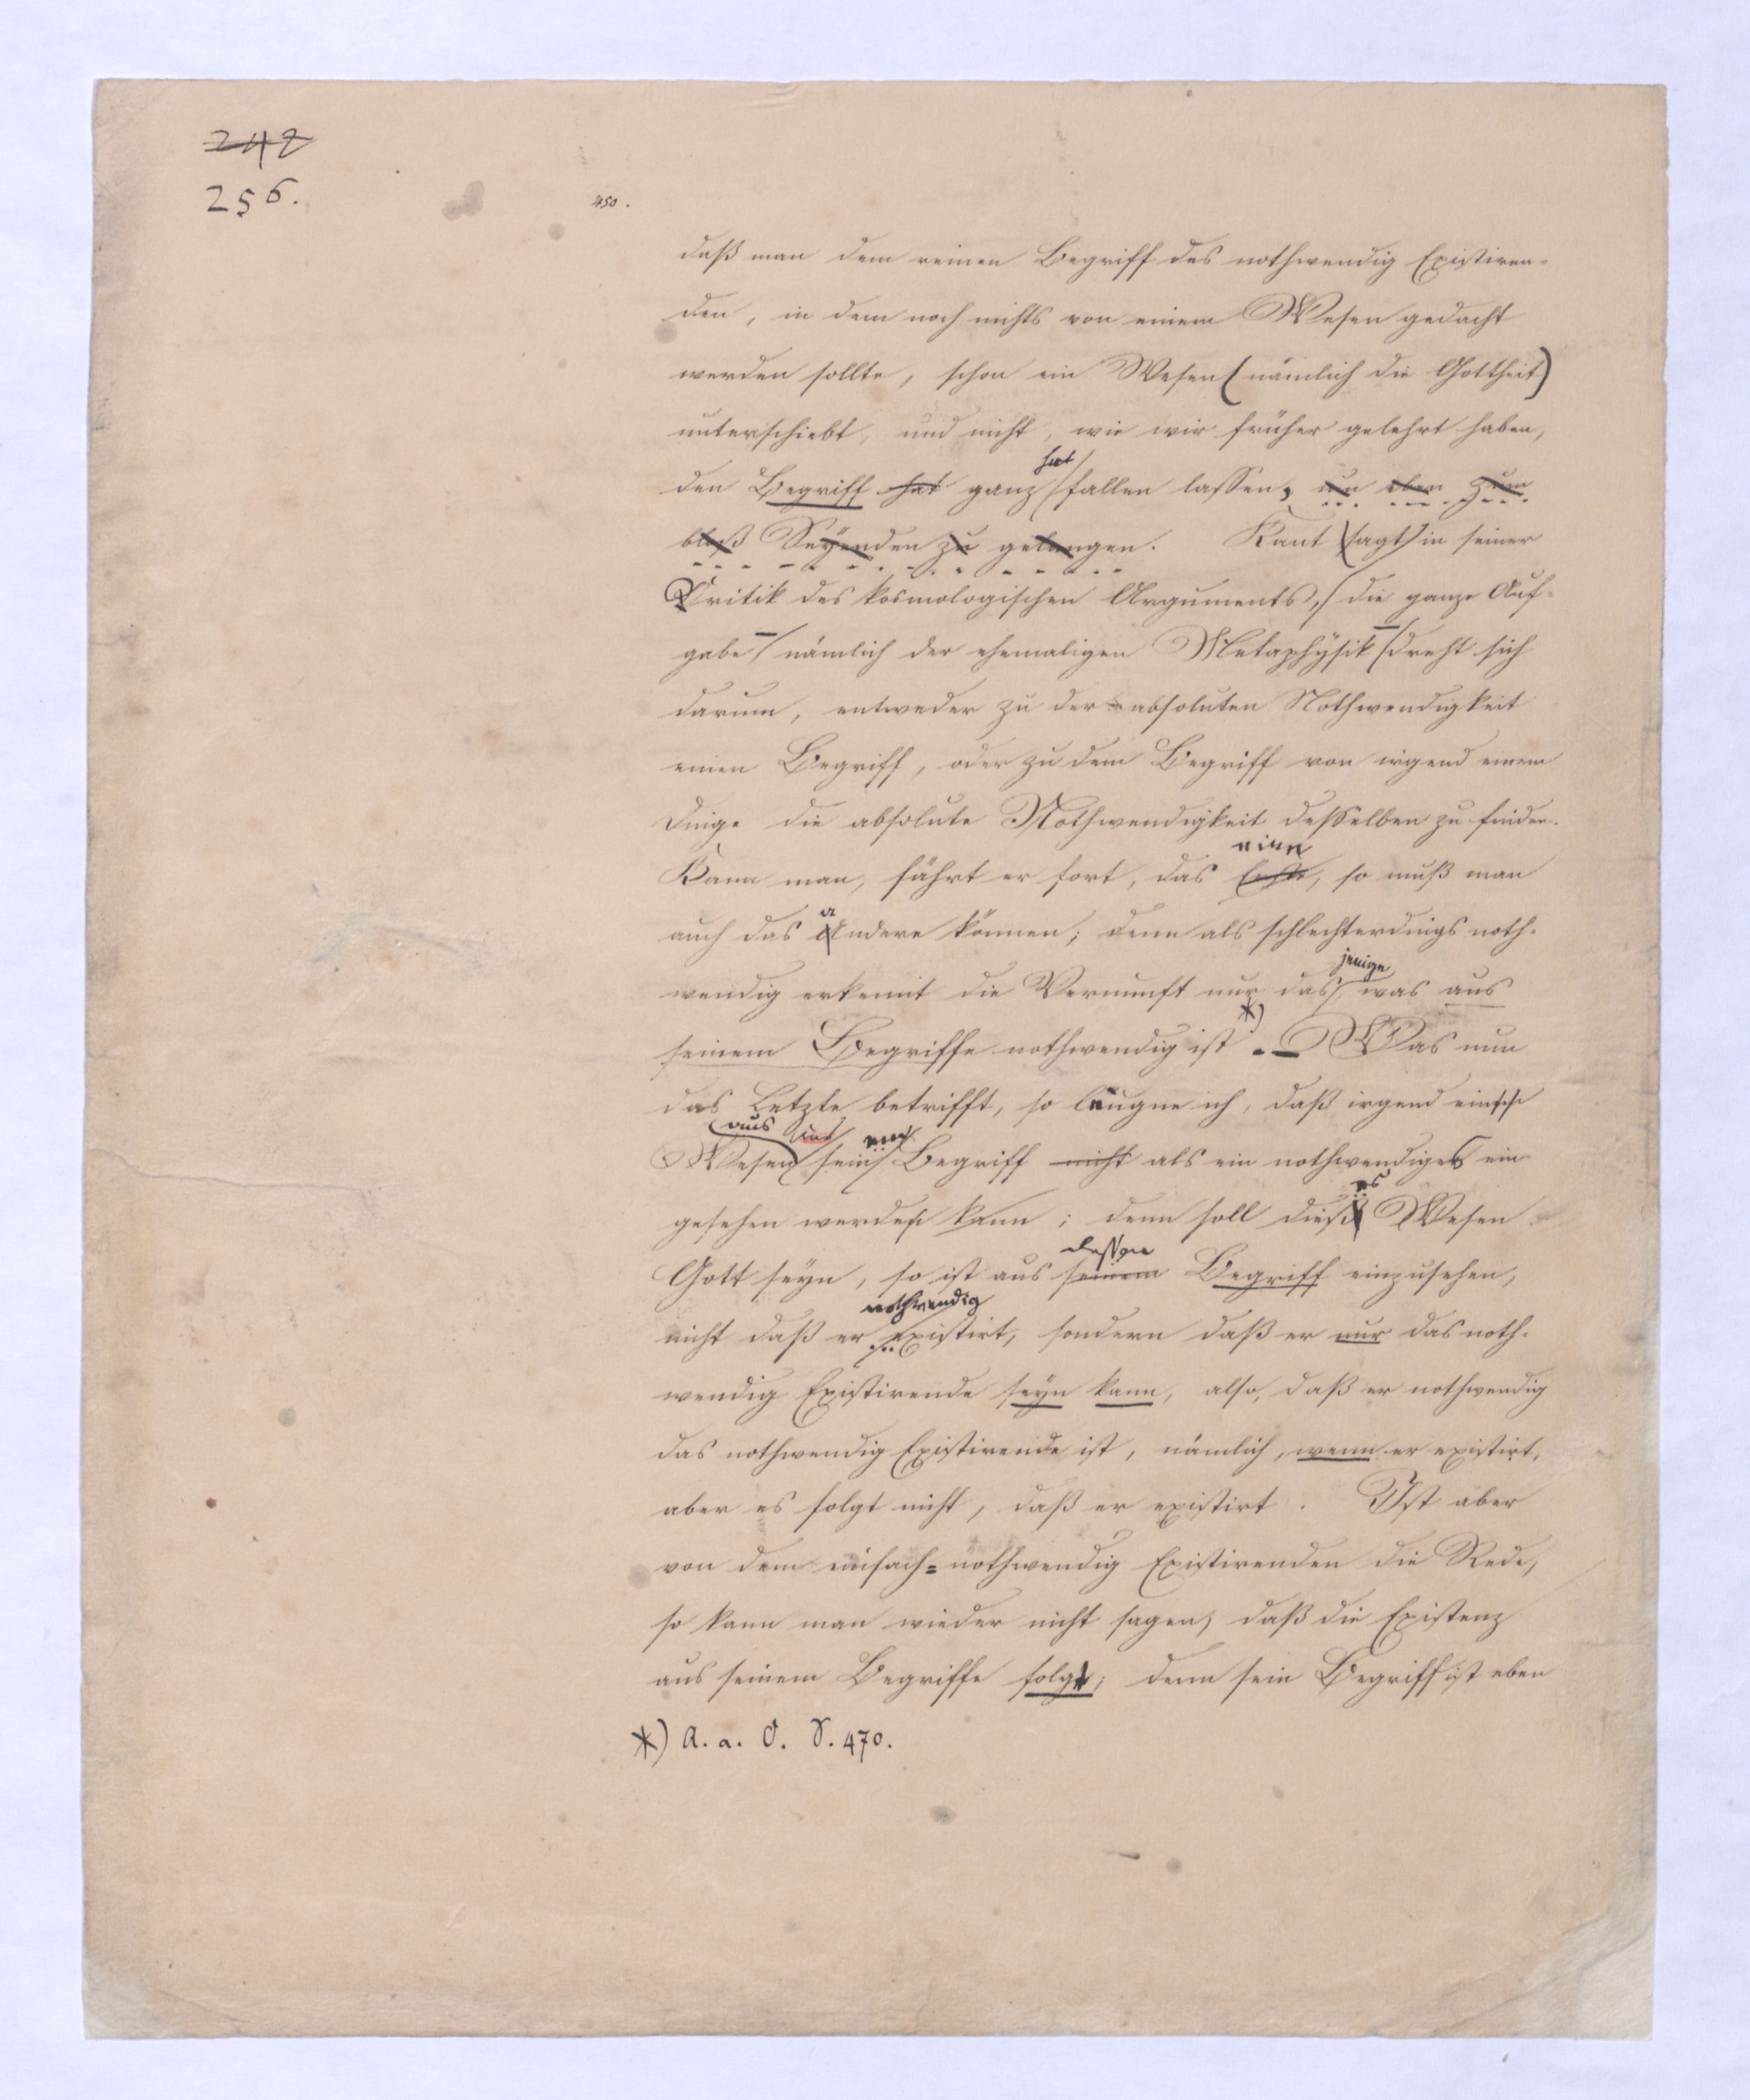 242
256.
450.
daß man dem reinen Begriff des nothwendig Existiren-
den, in dem noch nichts von einem Wesen gedacht
werden sollte, schon ein Wesen (nämlich die Gottheit)
unterschiebt, und nicht, wie wir früher gelehrt haben,
hat
den Begriff hat ganz fallen lassen, um eben zum
bloß Seyenden zu gelangen. Kant sagt in seiner
Critik des kosmologischen Arguments, die ganze Auf-
gabe – nämlich der ehemaligen Metaphysik – dreht sich
darum, entweder zu der absoluten Nothwendigkeit
einen Begriff, oder zu dem Begriff von irgend einem
Dinge die absolute Nothwendigkeit desselben zu finden.
eine
Kann man, fährt er fort, das Erste, so muß man
auch das andere können; denn als schlechterdings noth-
jenige
wendig erkennt die Vernunft nur das, was aus
seinem Begriffe nothwendig ist *). – Was nun
das Letzte betrifft, so leugne ich, daß irgend ein
aus
Wesen sein Begriff nicht als ein nothwendiges ein
es
gesehen werden kann; denn soll dieß Wesen
dessen
Gott seyn, so ist aus seinem Begriff einzusehen,
nothwendig
nicht daß er existirt, sondern daß er nur das noth-
wendig Existirende seyn kann, also, daß er nothwendig
das nothwendig Existirende ist, nämlich, wenn er existirt,
aber es folgt nicht, daß er existirt. Ist aber
von dem einfach=nothwendig Existirenden die Rede,
so kann man wieder nicht sagen, daß die Existenz
aus seinem Begriffe folgt; denn sein Begriff ist eben
*) A. a. O. S. 470.